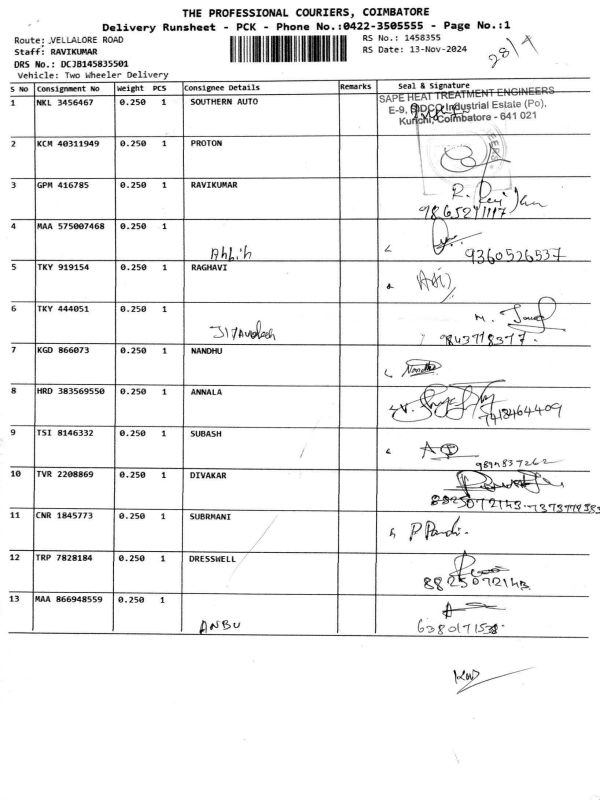 THE PROFESSIONAL COURIERS, COIMBATORE
Delivery Runsheet - PCK - Phone No.:0422-3505555 - Page No.:1
Route: VELLALORE ROAD
RS No.: 1458355
Staff: RAVIKUMAR
RS Date: 13-Nov-2024
28/9
DRS No.: DCJB145835501
Vehicle: Two Wheeler Delivery
S No Consignment No Weight PCS Consignee Details Remarks Seal & Signature
SAPE HEAT TREATMENT ENGINEERS
E-9, SIDCO Industrial Estate (Po),
Kurichi, Coimbatore - 641 021
1 NKL 3456467 0.250 1 SOUTHERN AUTO
2 KCM 40311949 0.250 1 PROTON
3 GPM 416785 0.250 1 RAVIKUMAR
9865241117
4 MAA 575007468 0.250 1 Abhih
9360526537
5 TKY 919154 0.250 1 RAGHAVI
6 TKY 444051 0.250 1
9843778377.
7 KGD 866073 0.250 1 NANDHU Nandhu
8 HRD 383569550 0.250 1 ANNALA
7418464409
9 TSI 8146332 0.250 1 SUBASH
10 TVR 2208869 0.250 1 DIVAKAR
8825072143
11 CNR 1845773 0.250 1 SUBRMANI P Pandi.
12 TRP 7828184 0.250 1 DRESSWELL
8825072143
13 MAA 866948559 0.250 1 ANBU